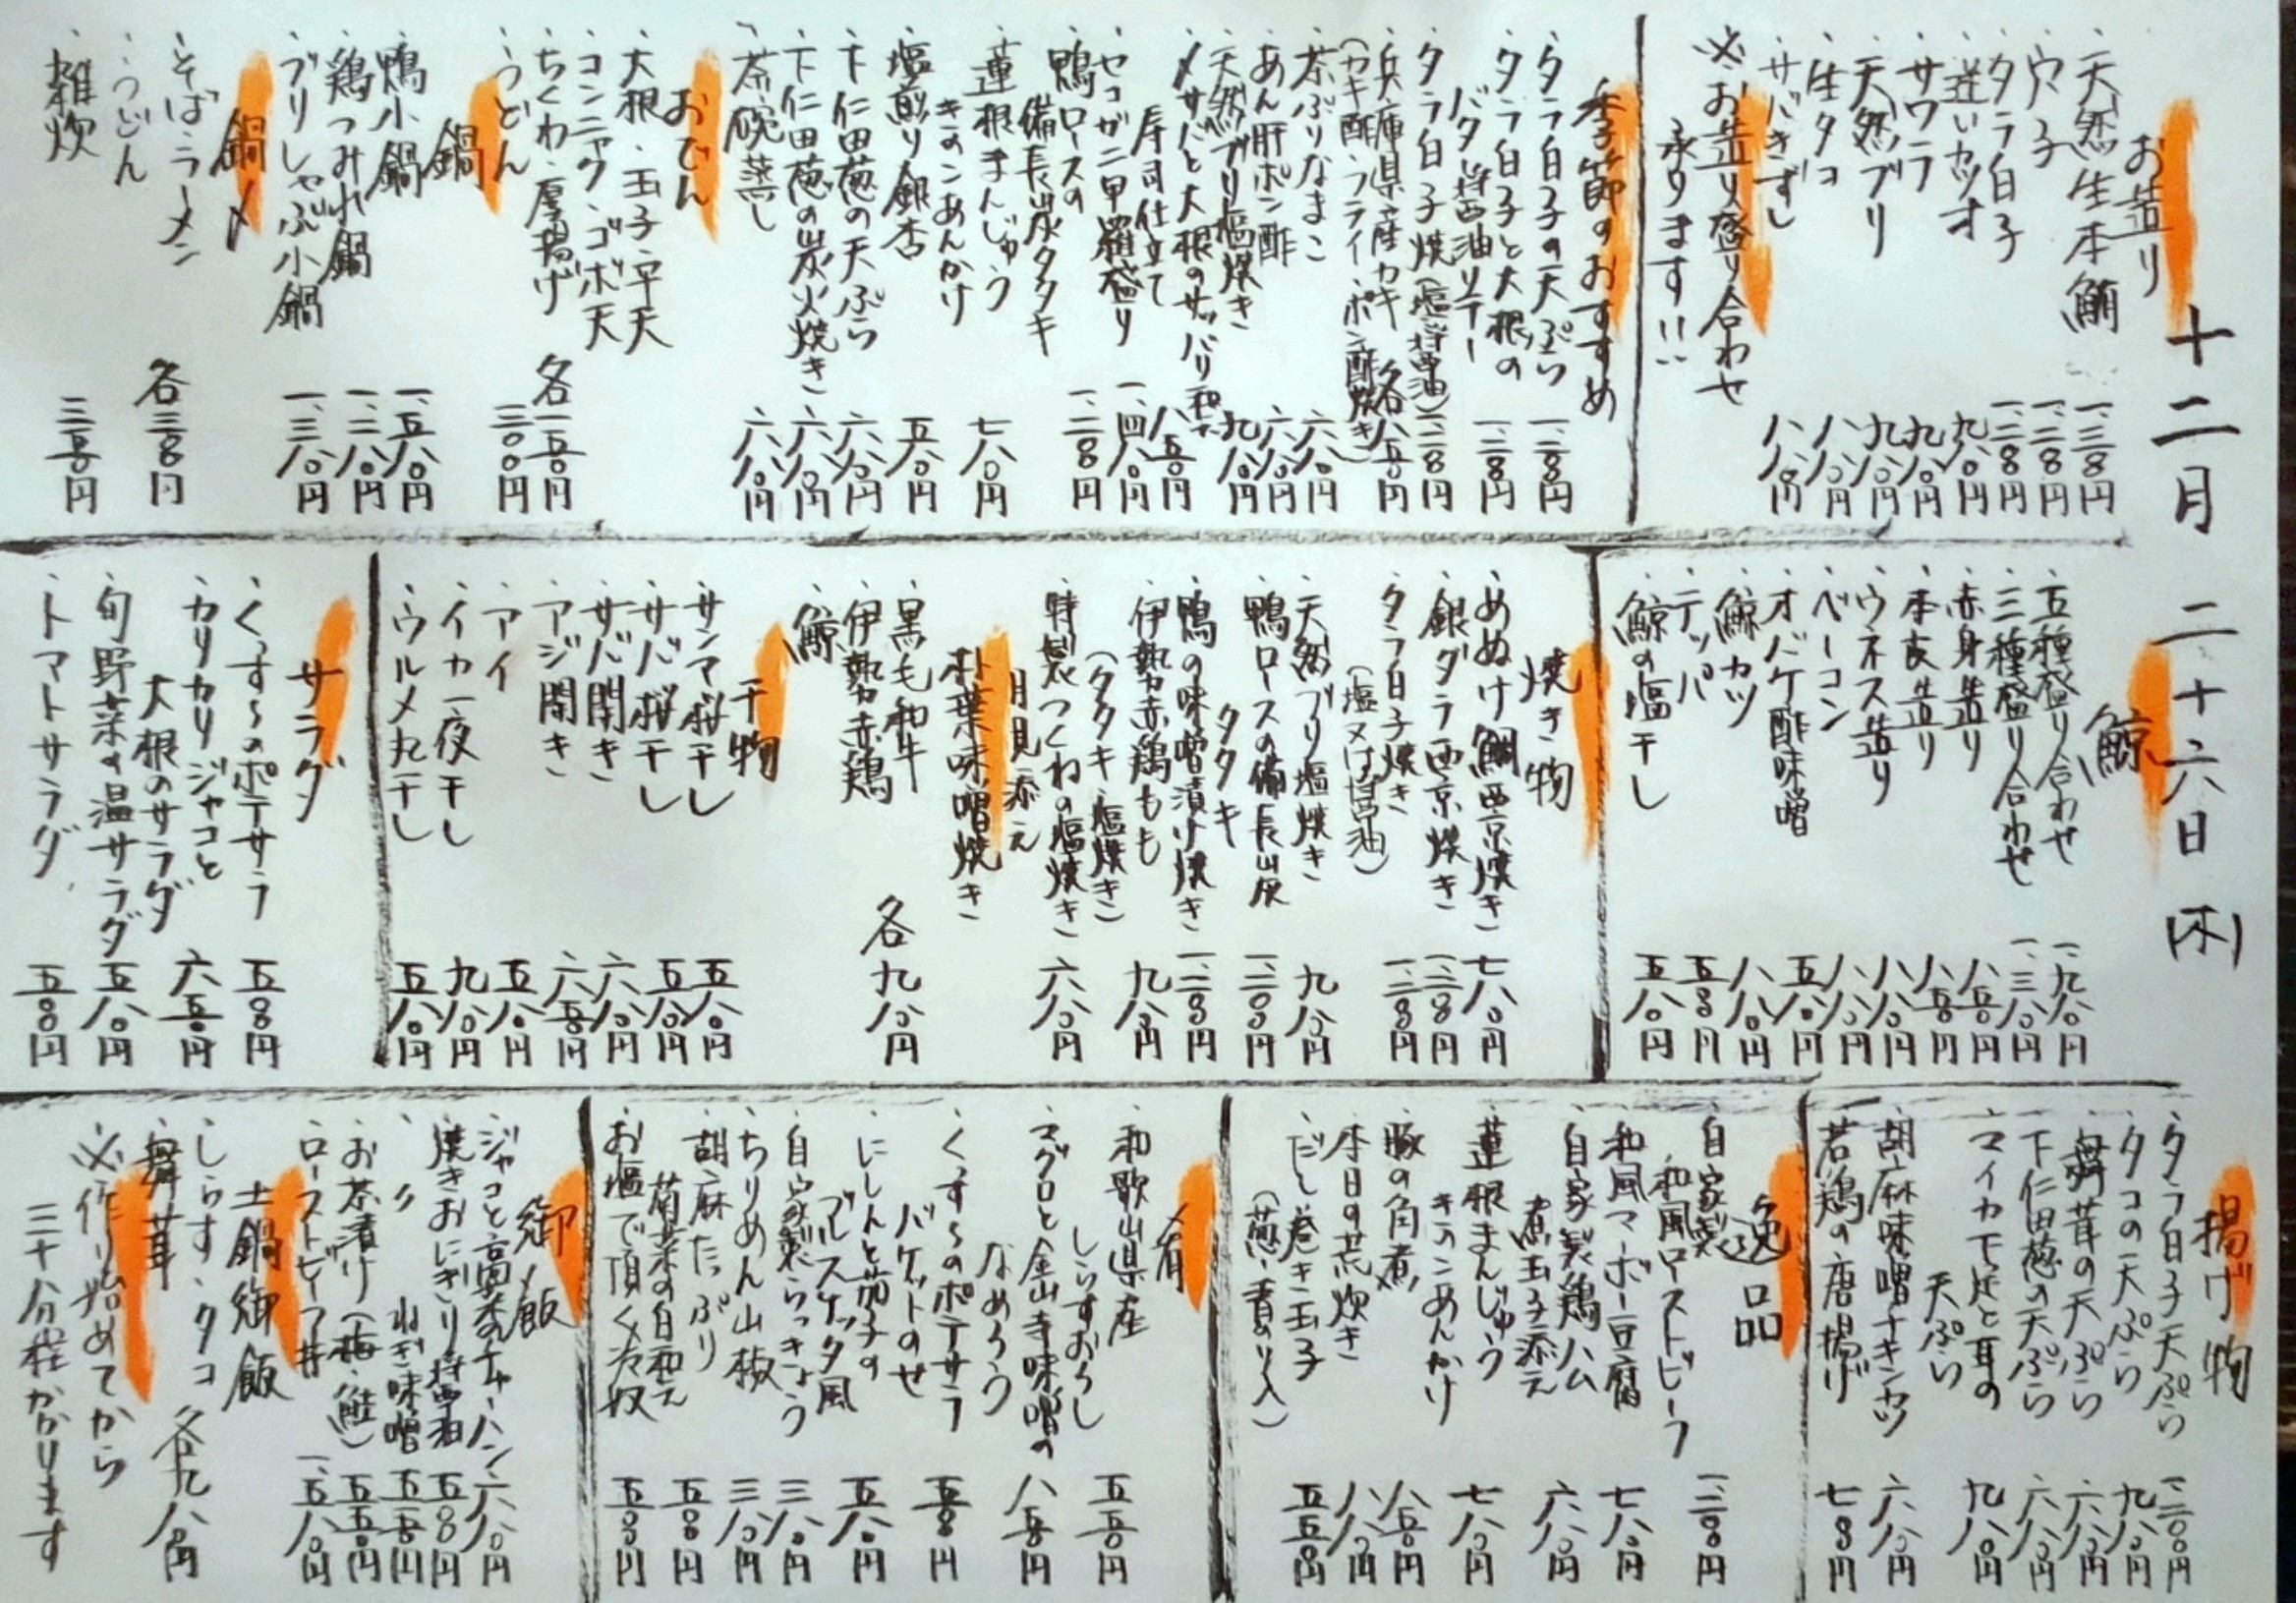 十二月二十六日(木)
お造り
・天然生本鮪 一、二三〇円
・穴子 一、二三〇円
・タラ白子 一、二三〇円
・逆いカツオ 九八〇円
・サワラ 九八〇円
・天然ブリ 九八〇円
・生タコ 八八〇円
・サバきずし 八八〇円
※お造り盛り合わせ
承ります!!
季節のおすすめ
・タラ白子の天ぷら
・タラ白子と大根の
バター醤油ソテー
・タラ白子焼(塩・醤油)
・兵庫県産カキ 各八五〇円
(カキ酢・フライ・ポン酢焼き)
・茶ぶりなまこ 六八〇円
・あん肝ポン酢 六八〇円
・天然ブリ塩焼き 九八〇円
・〆サバと大根のサッパリ和え 八五〇円
寿司仕立て
・セコガニ甲羅盛り 一、四八〇円
・鴨ロースの
備長炭タタキ
・蓮根まんじゅう 七八〇円
きのこあんかけ
・塩煎り銀杏 五八〇円
・下仁田葱の天ぷら 六八〇円
・下仁田葱の炭火焼き 六八〇円
・茶碗蒸し 六八〇円
おでん
・大根・玉子・平天
・コンニャク・ゴボ天
・ちくわ・厚揚げ 各一五〇円
・うどん 三〇〇円
鍋
・鴨小鍋 一、五八〇円
・鶏つみれ鍋 一、三八〇円
・ブリしゃぶ小鍋 一、三八〇円
鍋〆
・そば・ラーメン
・うどん 各三三〇円
・雑炊 三五〇円
鯨
・五種盛り合わせ 一、九八〇円
・三種盛り合わせ 一、三八〇円
・赤身造り 八五〇円
・本皮造り 八五〇円
・ウネス造り 八八〇円
・ベーコン 八八〇円
・オバケ酢味噌 五八〇円
・鯨カツ 八八〇円
・テッパ
・鯨の塩干し 五八〇円
焼き物
・めぬけ鯛西京焼き 七八〇円
・銀ダラ西京焼き
・タラ白子焼き
(塩又は醤油)
・天然ブリ塩焼き 九八〇円
・鴨ロースの備長炭
タタキ
・鴨の味噌漬け焼き
・伊勢赤鶏もも 九八〇円
(タタキ・塩焼き)
・特製つくねの塩焼き 六八〇円
月見添え
朴葉味噌焼き
・黒毛和牛 各九八〇円
・伊勢赤鶏
・鯨
干物
・サンマ桜干し 五八〇円
・サバ桜干し 五八〇円
・サバ開き 六八〇円
・アジ開き 六五〇円
・アイ 五八〇円
・イカ一夜干し 九八〇円
・ウルメ丸干し 五八〇円
サラダ
・くっすーのポテサラ
・カリカリジャコと
大根のサラダ 六五〇円
・旬野菜の温サラダ 五八〇円
・トマトサラダ
揚げ物
・タラ白子天ぷら
・タコの天ぷら 九八〇円
・舞茸の天ぷら 六八〇円
・下仁田葱の天ぷら 六八〇円
・マイカ下足と耳の
天ぷら 九八〇円
・胡麻味噌チキンカツ 六八〇円
・若鶏の唐揚げ
逸品
・自家製
和風ローストビーフ
・和風マーボー豆腐 七八〇円
・自家製鶏ハム
煮玉子添え 六八〇円
・蓮根まんじゅう
きのこあんかけ 七八〇円
・豚の角煮 八五〇円
・本日の荒炊き 八八〇円
・だし巻き玉子
(葱・青のり入)
〆肴
・和歌山県産
しらすおろし 五五〇円
・マグロと金山寺味噌の
なめろう 八五〇円
・くっすーのポテサラ
バケットのせ
・にしんと茄子の
ブルスケッタ風 五八〇円
・自家製らっきょう 三八〇円
・ちりめん山椒 三八〇円
・胡麻たっぷり
菊菜の白和え
・お塩で頂く冷奴
御〆飯
・ジャコと高菜のチャーハン 六八〇円
・焼きおにぎり醤油
・〃 ねぎ味噌
・お茶漬け(梅・鮭) 五五〇円
・ローストビーフ丼 一、五八〇円
土鍋御飯
・しらす・タコ 各九八〇円
・舞茸
※作り始めてから
三十分程かかります